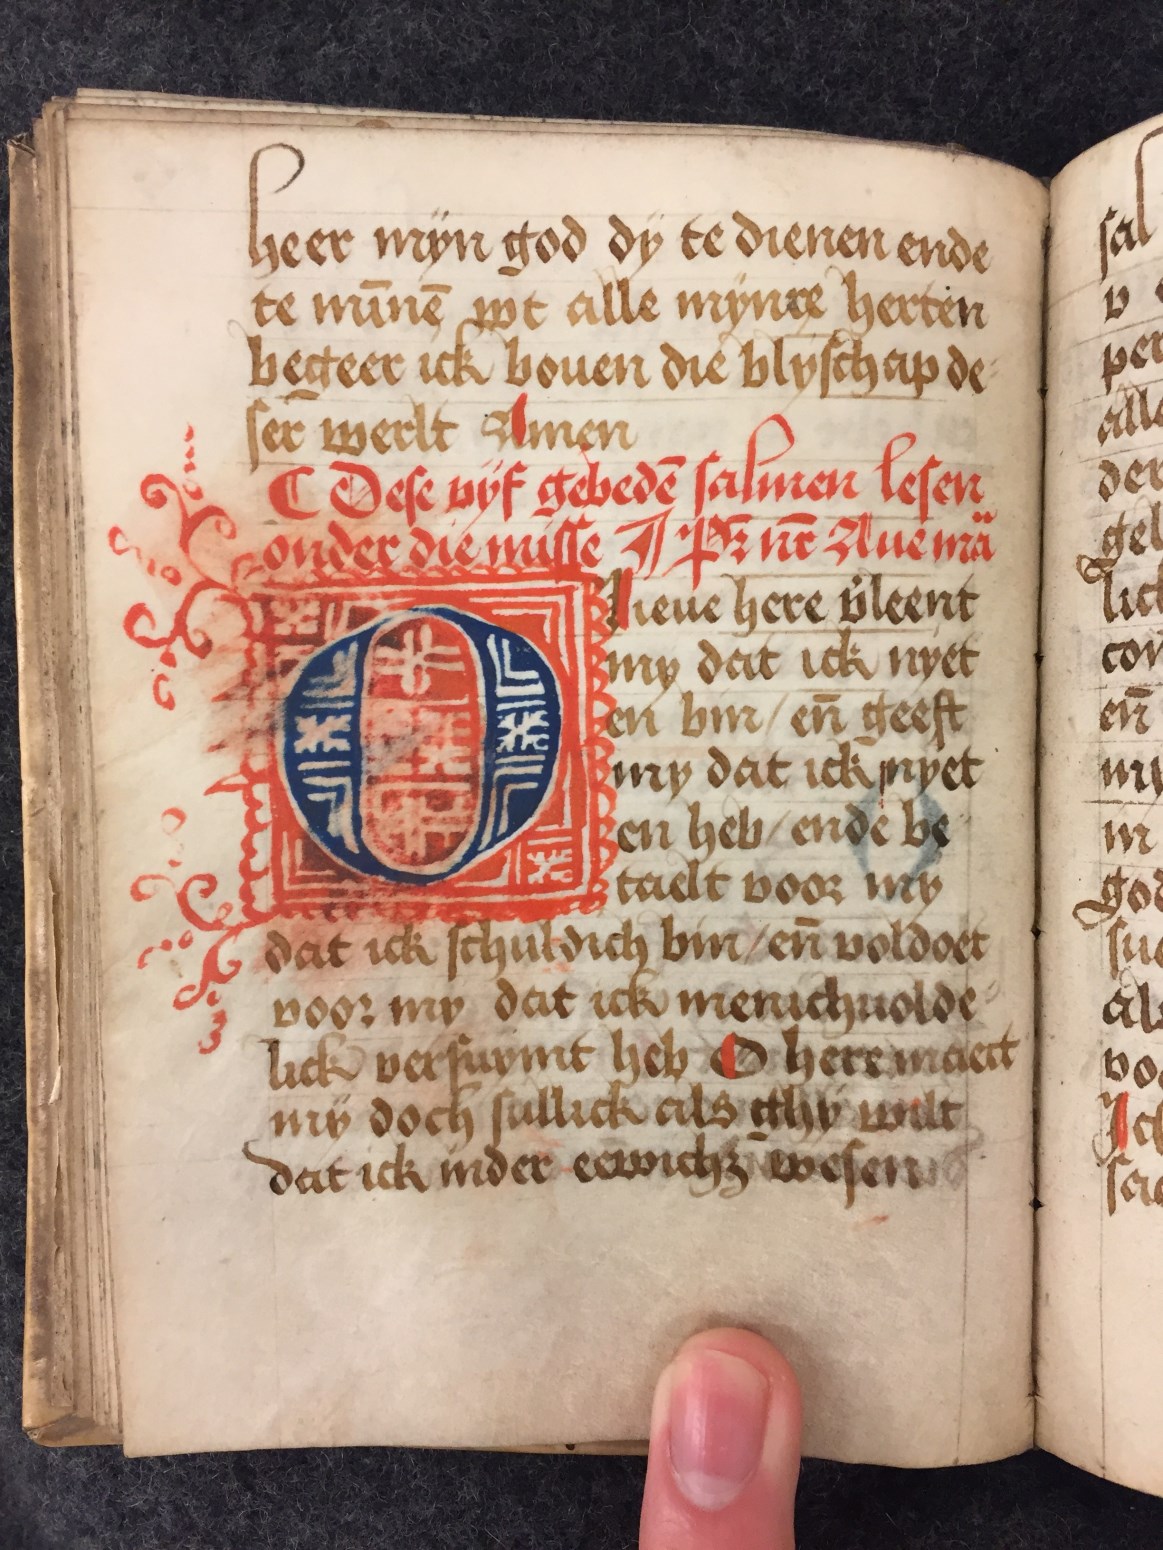 heer mÿn god dÿ te dienen ende
te mīnē wt alle mÿnre herten
begeer ick bouen die blyschap de-
ser werlt Amen
¶ Dese vÿf gebedē salmen lesen
onder die misse
O Lieue here v̄leent
my dat ick nyet
en bin / en̄ geeft
my dat ick nyet
en heb / ende be
taelt voor my
dat ick schuldich bin / en̄ voldoet
voor my dat ick menichuolde-
lick versuymt heb O here maect
mÿ doch sullick als ghy wilt
dat ick inder wesen
sal
v
per
alle
der
gel
lick
con
en̄
my
in
god
sue
als
voo
Ick